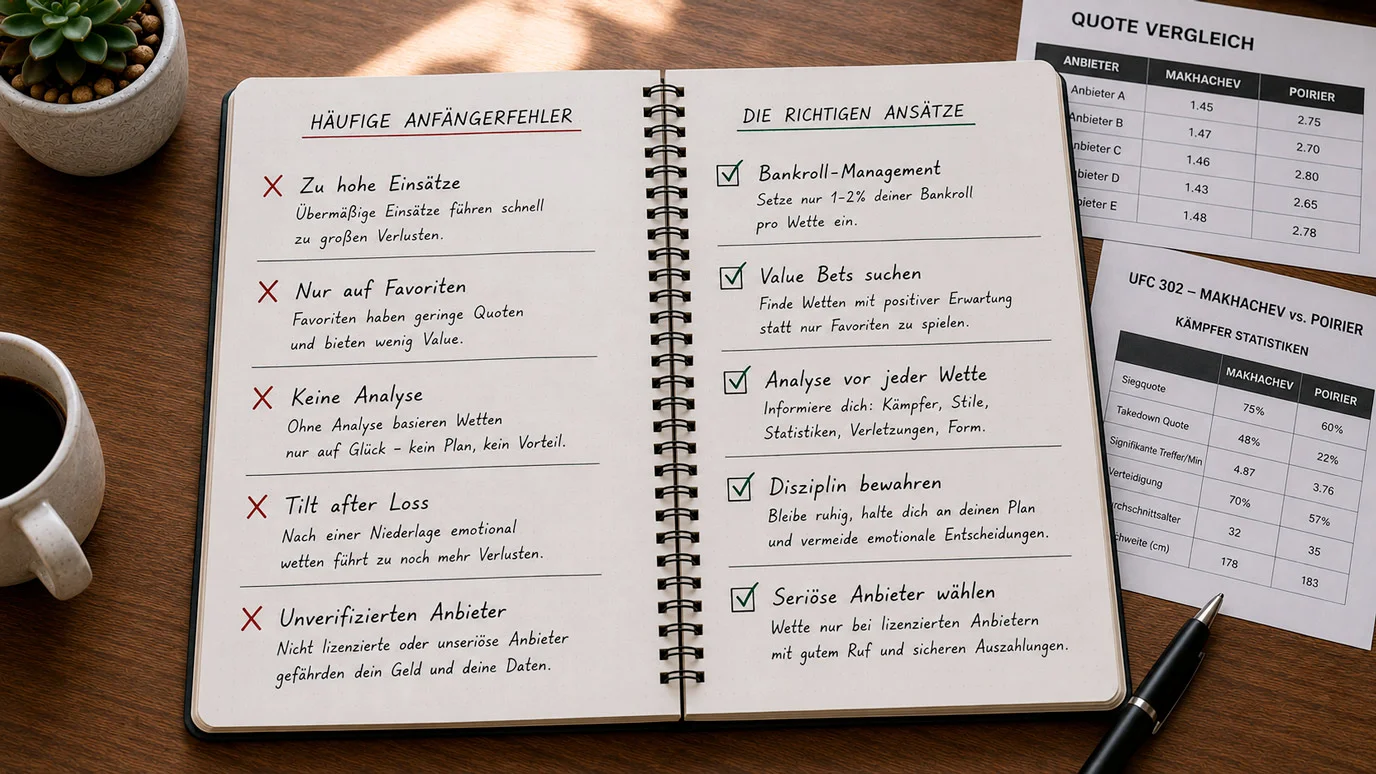 HÄUFIGE ANFÄNGERFEHLER
Zu hohe Einsätze
Übermäßige Einsätze führen schnell
zu großen Verlusten.
Nur auf Favoriten
Favoriten haben geringe Quoten
und bieten wenig Value.
Keine Analyse
Ohne Analyse basieren Wetten
nur auf Glück – kein Plan, kein Vorteil.
Tilt after Loss
Nach einer Niederlage emotional
wetten führt zu noch mehr Verlusten.
Unverifizierten Anbieter
Nicht lizenzierte oder unseriöse Anbieter
gefährden dein Geld und deine Daten.
DIE RICHTIGEN ANSÄTZE
Bankroll-Management
Setze nur 1-2% deiner Bankroll
pro Wette ein.
Value Bets suchen
Finde Wetten mit positiver Erwartung
statt nur Favoriten zu spielen.
Analyse vor jeder Wette
Informiere dich: Kämpfer, Stile,
Statistiken, Verletzungen, Form.
Disziplin bewahren
Bleibe ruhig, halte dich an deinen Plan
und vermeide emotionale Entscheidungen.
Seriöse Anbieter wählen
Wette nur bei lizenzierten Anbietern
mit gutem Ruf und sicheren Auszahlungen.
QUOTE VERGLEICH
ANBIETER MAKHACHEV POIRIER
Anbieter A 1.45 2.75
Anbieter B 1.47 2.70
nbieter C 1.46 2.80
bieter D 1.43 2.65
bieter E 1.48 2.78
UFC 302 – MAKHACHEV vs. POIRIER
KÄMPFER STATISTIKEN
MAKHACHEV POIRIER
Siegquote 75% 60%
Takedown Quote 48% 22%
Signifikante Treffer/Min 4.87 3.76
Verteidigung 70% 57%
rchschnittsalter 32 35
chweite (cm) 178 183